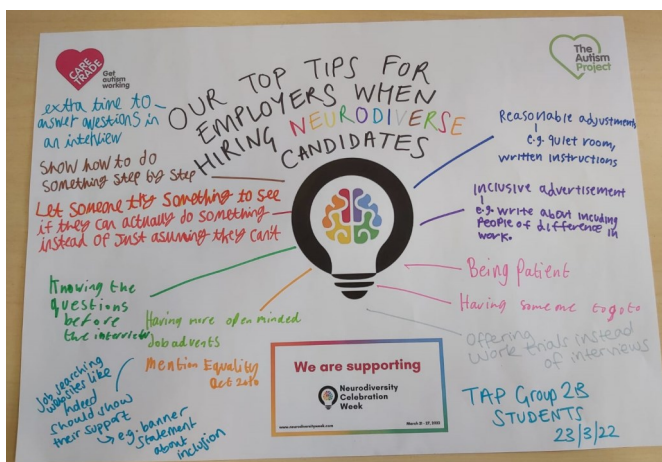 CARE
TRADE
Get
autism
working
The
Autism
Project
OUR TOP TIPS FOR
EMPLOYERS WHEN
HIRING NEURODIVERSE
CANDIDATES
extra time to
answer questions in
an interview
Show how to do
something step by step
Let someone try something to see
if they can actually do something
instead of just asuming they can't
Knowing the
questions
before
the interview
Having more open minded
job advents
Mention Equality
Act 2010
Job searching
websites like
Indeed
should show
their support
→ e.g. banner
statement
about
inclusion
Reasonable adjustments
e.g. quiet room,
written instructions
Inclusive advertisement
e.g. write about incuding
people of difference in
work.
Being Patient
Having someone to go to
Offering
work trials instead
of interviews
We are supporting
Neurodiversity
Celebration
Week
www.neurodiversityweek.com
TAP Group 2B
STUDENTS
23/3/22